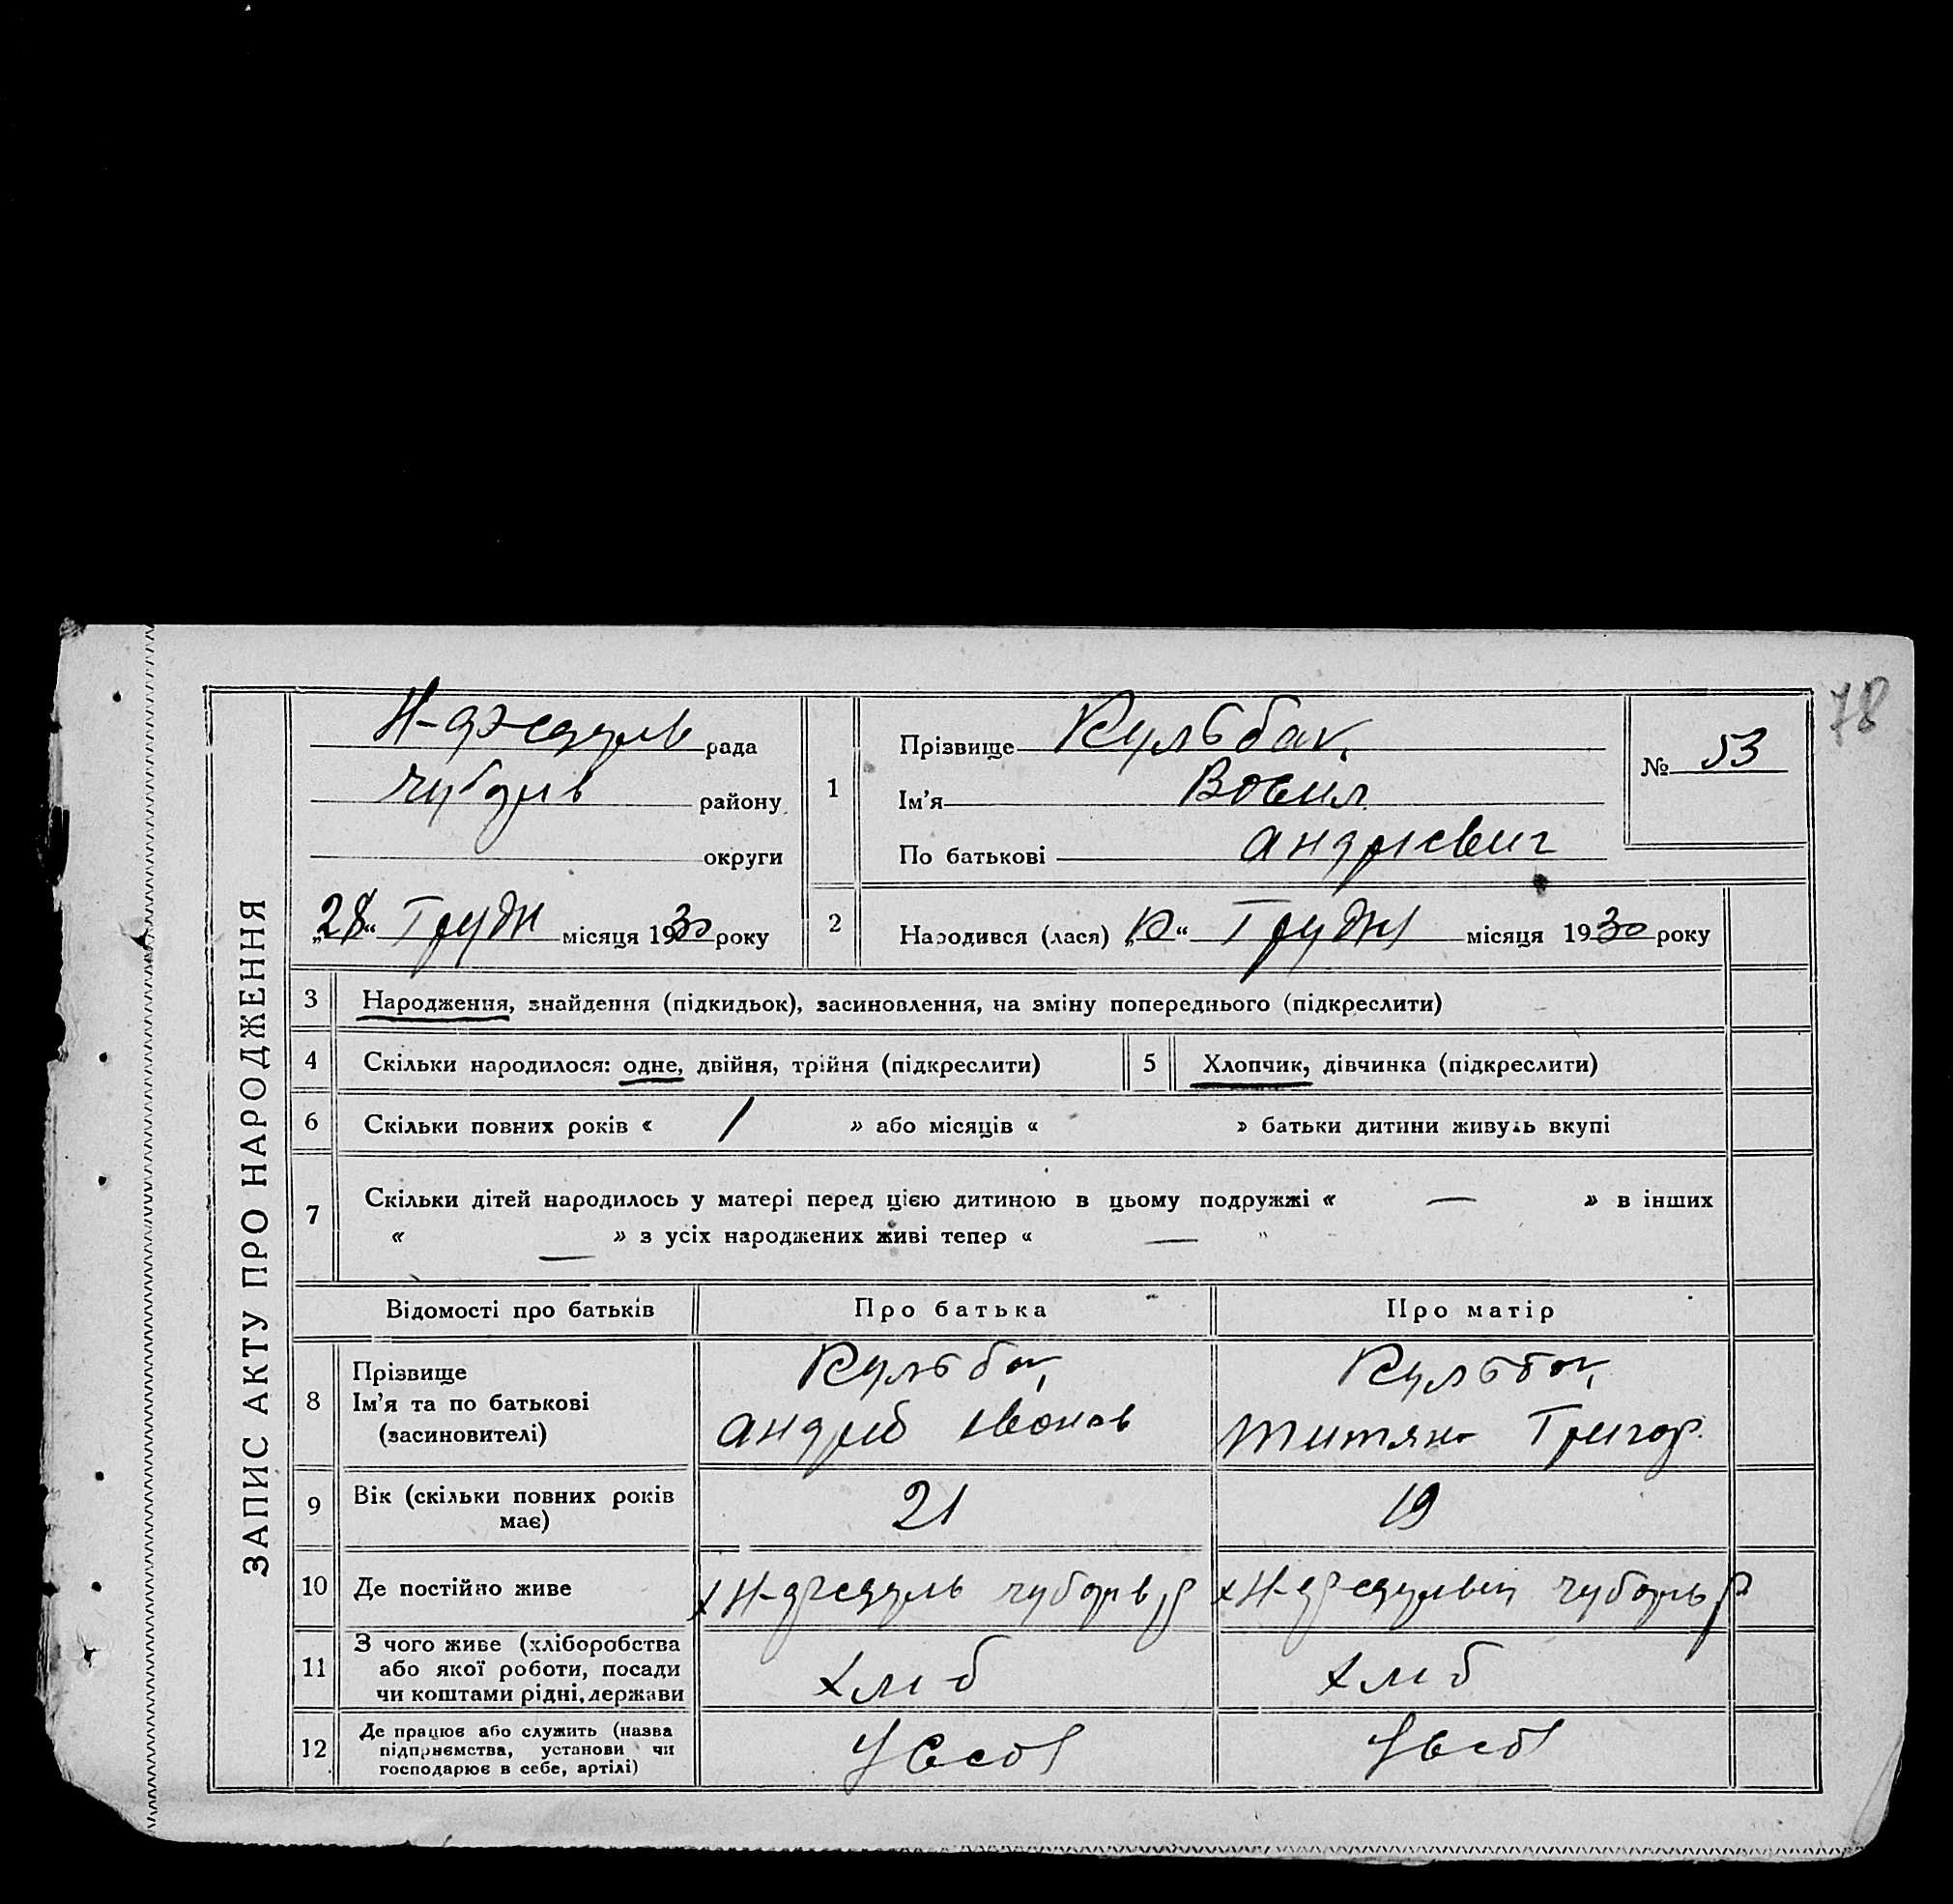 78
ЗАПИС АКТУ ПРО НАРОДЖЕННЯ
Н-Джедуль рада
Чубарів району
округи
„28“ Грудн місяця 1930 року
1
Прізвище Кульбак
Ім'я Восил
По батькові Андрієвич
№ 53
2 Народився (лася) „10“ Грудн місяця 1930 року
3 Народження, знайдення (підкидьок), засиновлення, на зміну попереднього (підкреслити)
4 Скільки народилося: одне, двійня, трійня (підкреслити)
5 Хлопчик, дівчинка (підкреслити)
6 Скільки повних років « 1 » або місяців « » батьки дитини живуть вкупі
7 Скільки дітей народилось у матері перед цією дитиною в цьому подружжі « — » в інших
« — » з усіх народжених живі тепер « — "
Відомості про батьків Про батька Про матір
8 Прізвище
Ім'я та по батькові
(засиновителі)
Кульбак
Андрій Іванов
Кульбак
Титяна Григор.
9 Вік (скільки повних років
має)
21
19
10 Де постійно живе
х Н-Джедуль Чубар р
х Н-Джедуль Чубар р
11 З чого живе (хліборобства
або якої роботи, посади
чи коштами рідні, держави
хліб
хліб
12 Де працює або служить (назва
підприємства, установи чи
господарює в себе, артілі)
У себе
У себе